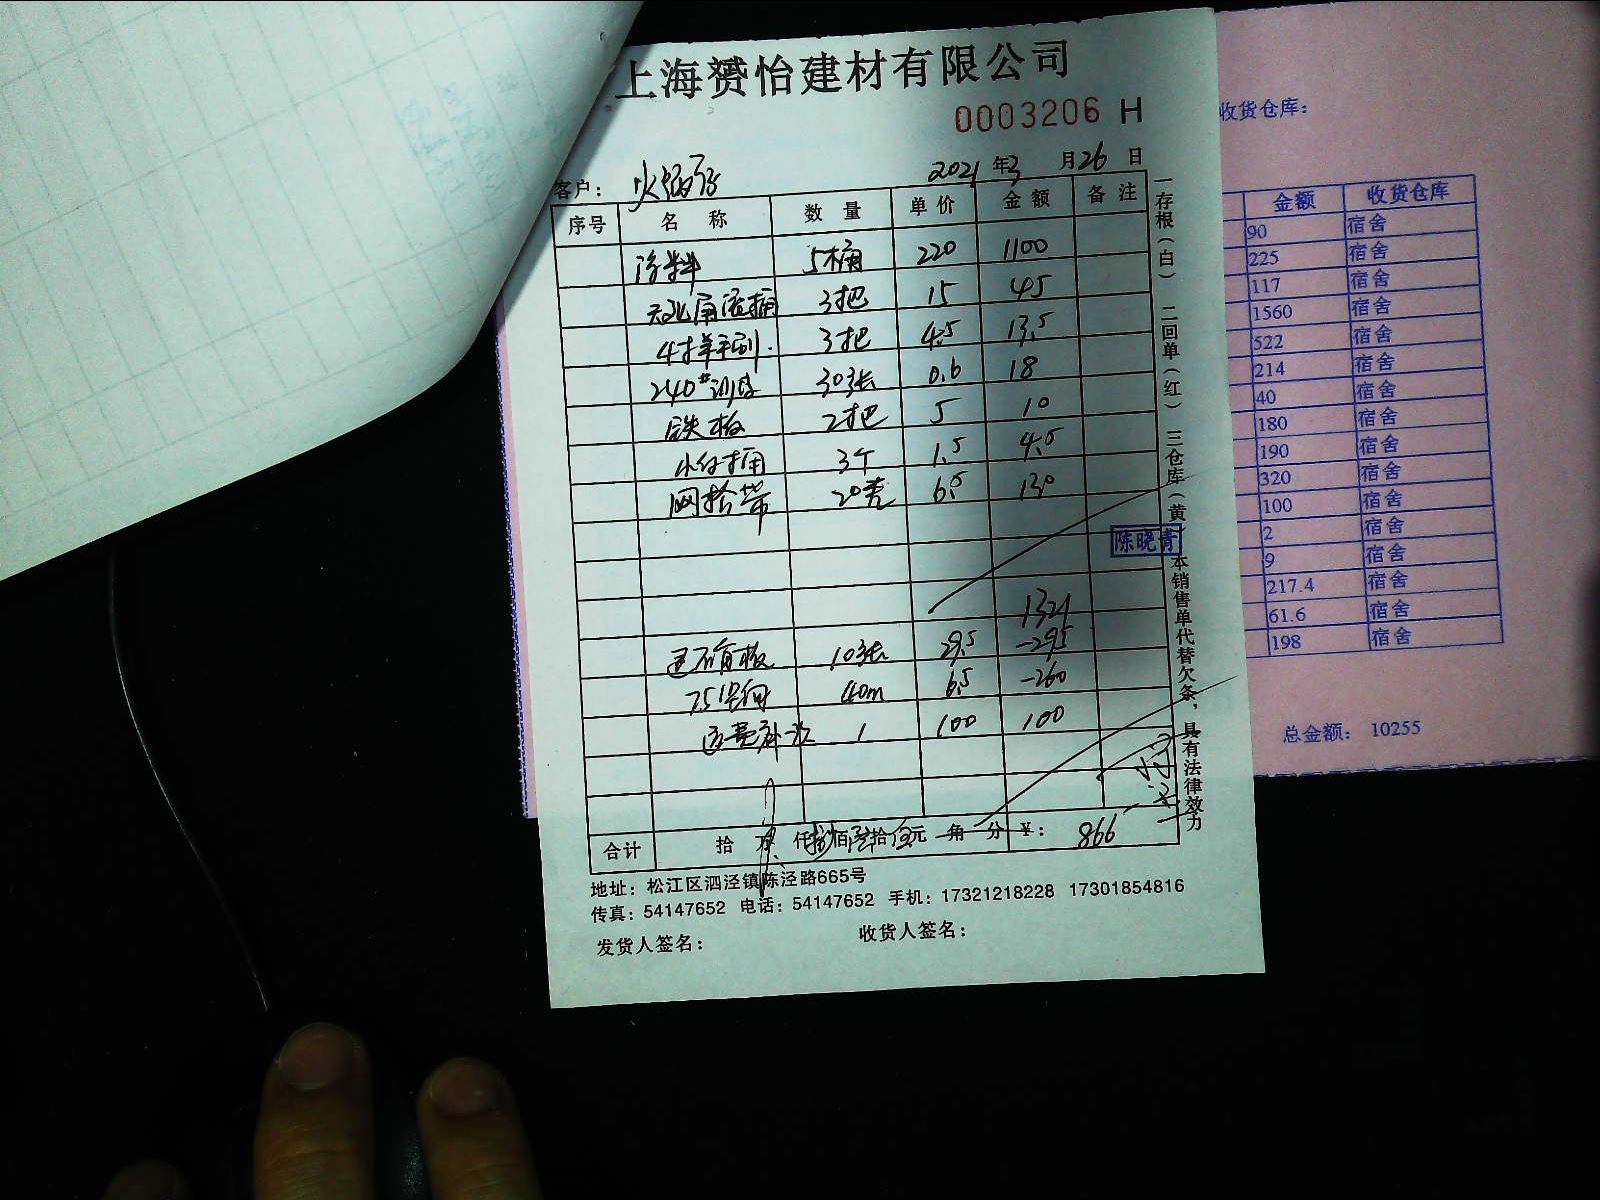 上海赟怡建材有限公司
0003206 H
客户： 2021 年 3 月 26 日
序号 名称 数量 单价 金额 备注
涂料 5桶 220 1100
3把 15 45
4寸羊毛刷 3把 4.5 13.5
240# 砂皮 30张 0.6 18
铁板 2把 5 10
3个 1.5 4.5
网格带 20卷 6.5 130
陈晓青
1321
退石膏板 10张 29.5 -295
75 40m 6.5 -260
运费补 1 100 100
合计 拾 万 仟 捌佰 陆拾 元 角 分 ¥： 866
地址：松江区泗泾镇陈泾路665号
传真：54147652 电话：54147652 手机：17321218228 17301854816
发货人签名： 收货人签名：
一存根（白） 二回单（红） 三仓库（黄 本销售单代替欠条，具有法律效力
收货仓库：
金额 收货仓库
90 宿舍
225 宿舍
117 宿舍
1560 宿舍
522 宿舍
214 宿舍
40 宿舍
180 宿舍
190 宿舍
320 宿舍
100 宿舍
2 宿舍
9 宿舍
217.4 宿舍
61.6 宿舍
198 宿舍
总金额： 10255